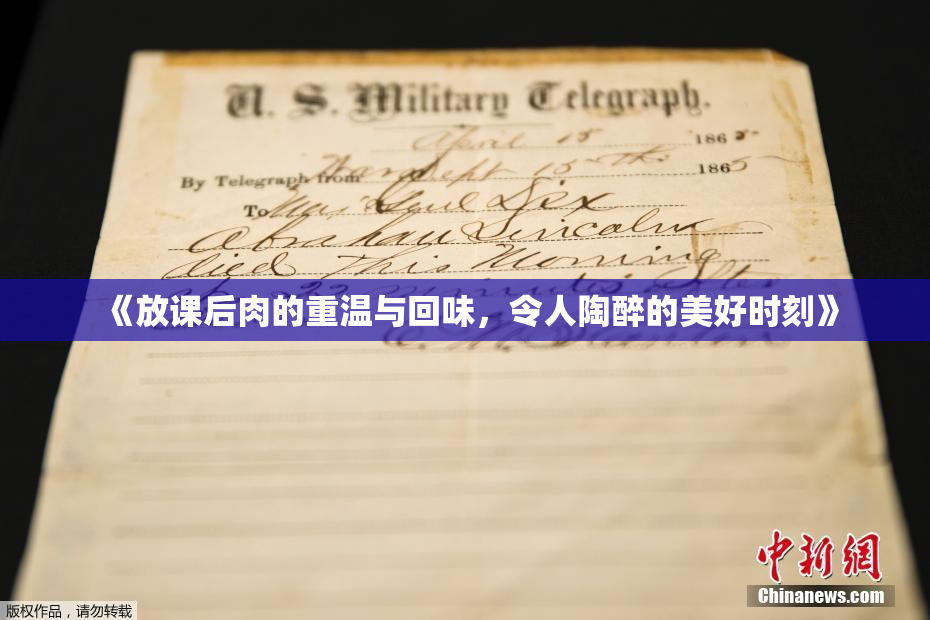 U. S. Military Telegraph.
April 15 1865-
By Telegraph from War Dept 15th 1865
To Maj Genl Dix
Abraham Lincoln
died This Morning
22 minutes after
《放课后肉的重温与回味，令人陶醉的美好时刻》
E. M. Stanton
中新網
Chinanews.com
版权作品，请勿转载